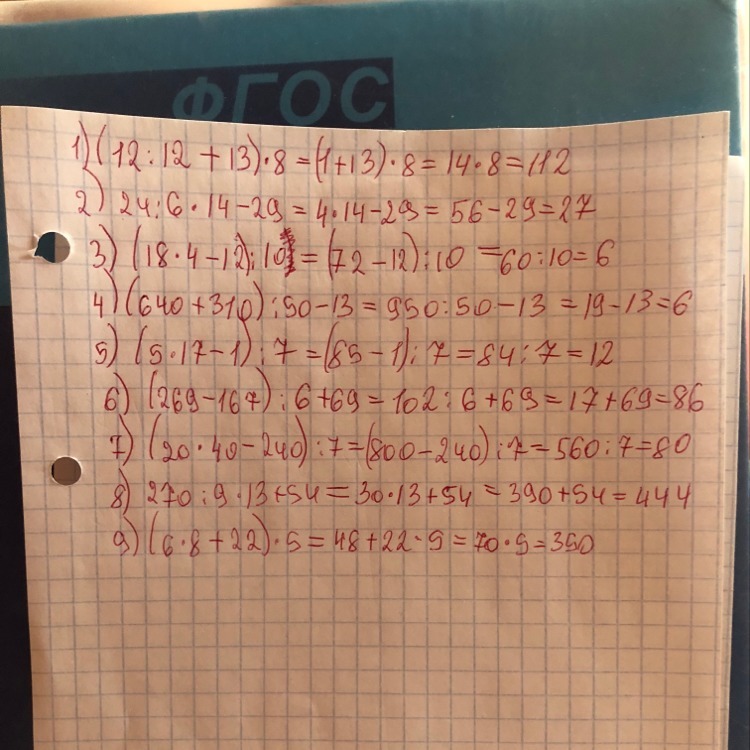 ФГОС
1) (12:12+13)·8=(1+13)·8=14·8=112
2) 24:6·14-29=4·14-29=56-29=27
3) (18·4-12):10=(72-12):10=60:10=6
4) (640+310):50-13=950:50-13=19-13=6
5) (5·17-1):7=(85-1):7=84:7=12
6) (269-167):6+69=102:6+69=17+69=86
7) (20·40-240):7=(800-240):7=560:7=80
8) 270:9·13+54=30·13+54=390+54=444
9) (6·8+22)·5=48+22·5=70·5=350